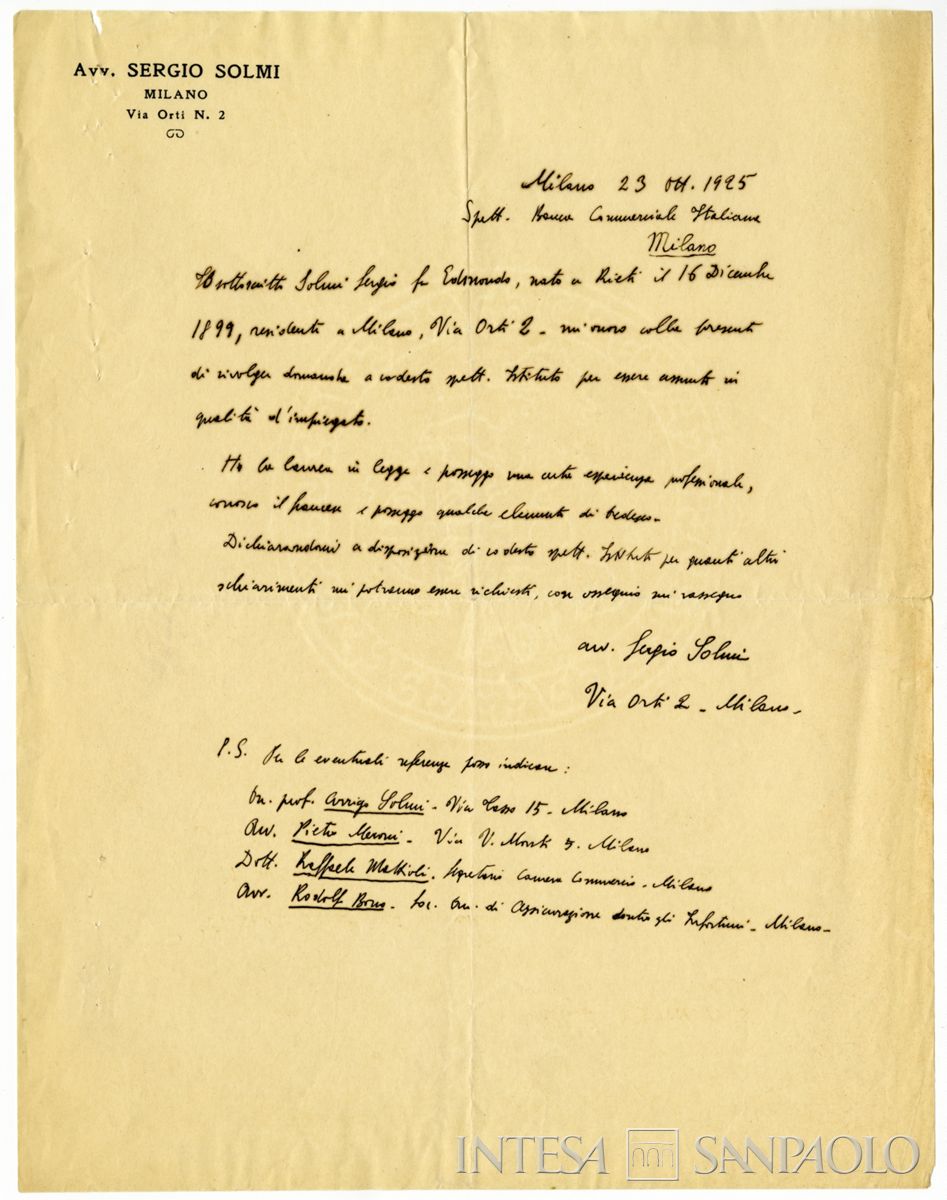 Avv. SERGIO SOLMI
MILANO
Via Orti N. 2
Milano 23 Ott. 1925
Spett. Banca Commerciale Italiana
Milano
Il sottoscritto Solmi Sergio fu Edmondo, nato a Rieti il 16 Dicembre
1899, residente a Milano, Via Orti 2 - mi onoro colla presente
di rivolger domanda a codesto spett. Istituto per essere assunto in
qualità d'impiegato.
Ho la laurea in legge e posseggo una certa esperienza professionale,
conosco il francese e posseggo qualche elemento di tedesco.
Dichiarandomi a disposizione di codesto spett. Istituto per quanti altri
schiarimenti mi potranno essere richiesti, con ossequio mi rassegno
avv. Sergio Solmi
Via Orti 2 - Milano -
P.S. Per le eventuali referenze posso indicare:
On. prof. Arrigo Solmi - Via Tasso 15 - Milano
Avv. Pietro Meroni - Via V. Monti Milano
Dott. Raffaele Mattioli. Segretario Camera Commercio - Milano
Avv. Rodolfo - Soc. An. di Assicurazione contro gli Infortuni - Milano -
INTESA SANPAOLO